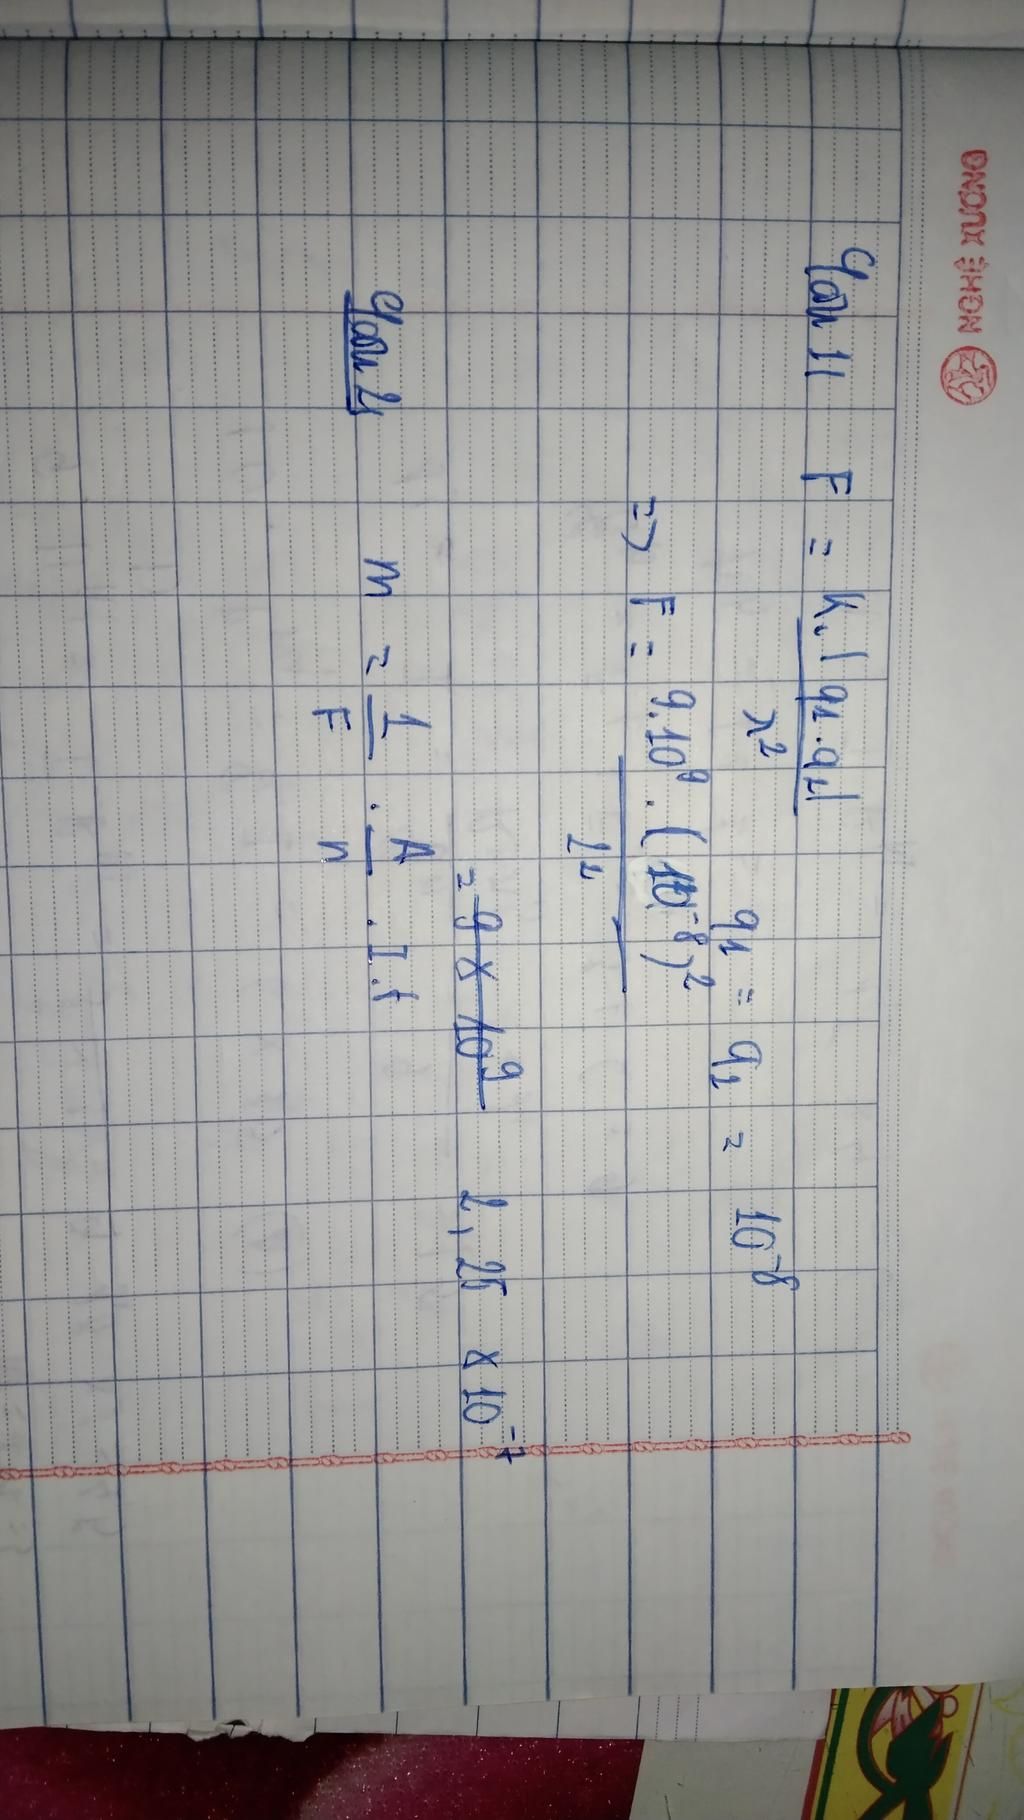 NGHỆ XƯƠNG
Câu 11 F = k.|q1.q2|
r²
q1 = q2 = 10⁻⁸
=> F = 9.10⁹.(10⁻⁸)²
2²
= 9 x 10⁹ 2,25 x 10⁻⁷
Câu 2 m = 1/F . A/n . I.t